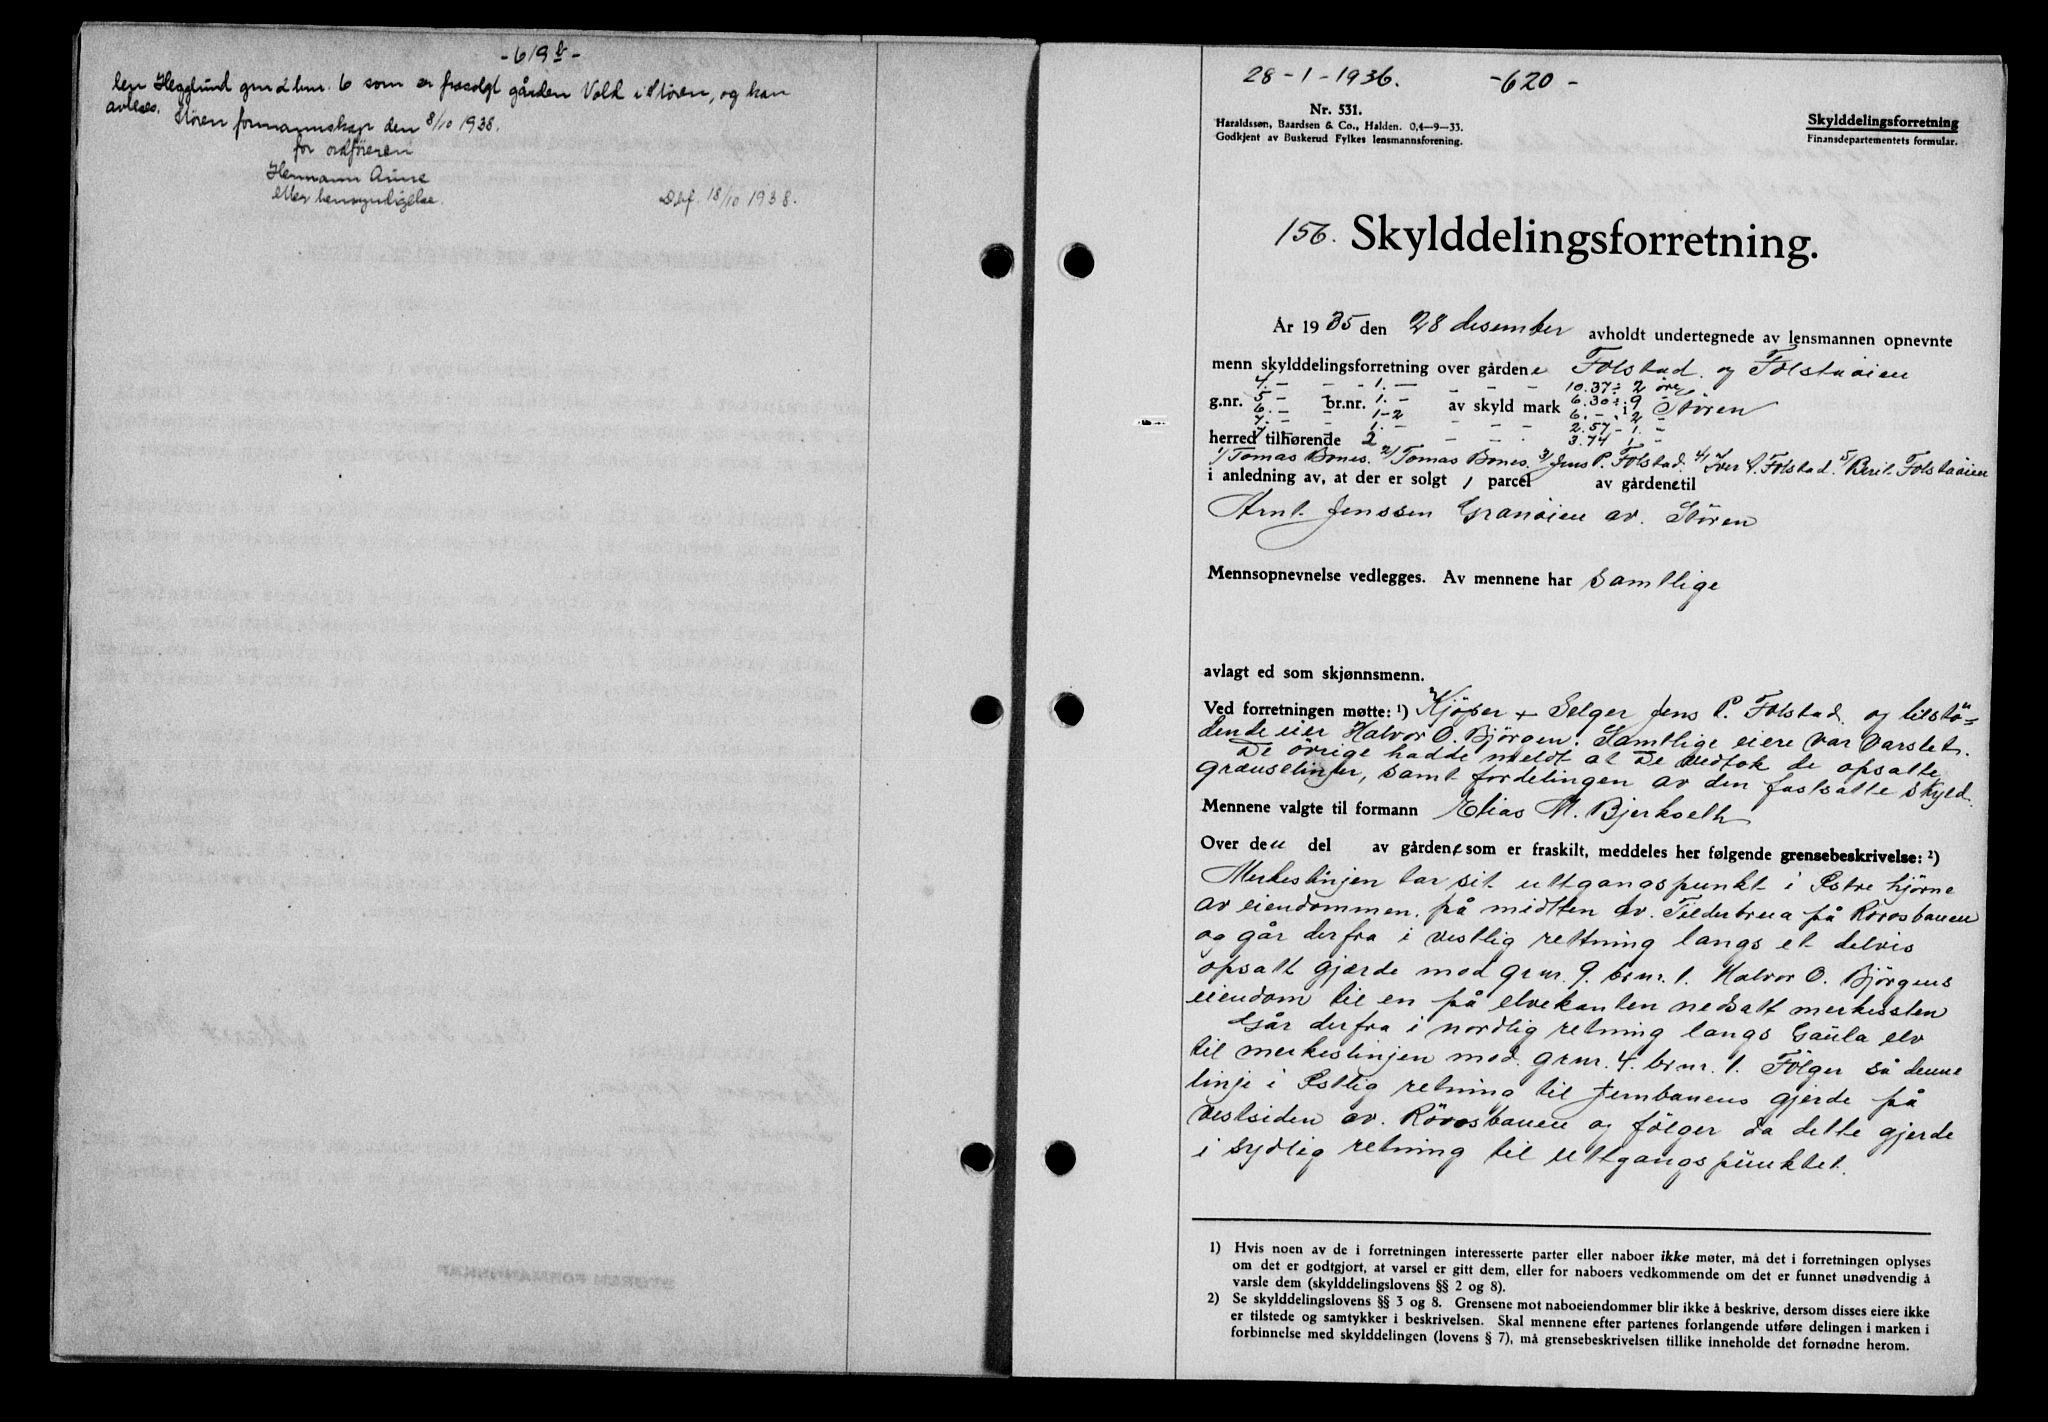 -619b-
len Hegglund gnr 2 bnr. 6 som er frasolgt gården Vold i Støren, og kan
avleses. Støren formannskap den 8/10 1938.
for ordføreren
Hermann Aune
etter bemyndigelse.
Def. 18/10 1938.
28-1-1936. -620-
Nr. 531.
Haraldssøn, Baardsen & Co., Halden. 0,4—9—33.
Godkjent av Buskerud Fylkes lensmannsforening.
Skylddelingsforretning
Finansdepartementets formular.
156. Skylddelingsforretning.
År 1935 den 28 desember avholdt undertegnede av lensmannen opnevnte
menn skylddelingsforretning over gårdene Folstad og Folstadøien
4. — — - 1. — — — — 10.37 ÷ 2 øre
g.nr. 5 — br.nr. 1. — av skyld mark 6.30 ÷ 9 i Støren
6. — — 1-2 — — 6. — 2 —
7. — — 1. — — — 2.57 - 1. —
herred tilhørende 2 — — — 3.74 1 —
1/ Tomas Bones. 2/ Tomas Bones. 3/ Jens P. Folstad. 4/ Iver I. Folstad. 5/ Berit Folstadøien
i anledning av, at der er solgt 1 parcel av gårdene til
Arnt Jenssen Granøien av Støren
Mennsopnevnelse vedlegges. Av mennene har samtlige
avlagt ed som skjønnsmenn.
Ved forretningen møtte: 1) Kjöper + Selger Jens P. Folstad og tilstö-
dende eier Halvor O. Björgen. Samtlige eiere var varslet.
De övrige hadde meldt at De vedtok de opsatte
grænselinjer, samt fordelingen av den fastsatte skyld.
Mennene valgte til formann Elias M. Bjerkseth
Over den del av gårdene som er fraskilt, meddeles her følgende grensebeskrivelse: 2)
Merkeslinjen tar sit uttgangspunkt i Östre hjörne
av eiendommen. på midtten av Tilderbrua på Rörosbanen
og går derfra i vestlig rettning langs et delvis
opsatt gjærde mod grnr. 9. brnr. 1. Halvor O. Björgens
eiendom til en på elvekanten nedsatt merkessten
Går derfra i nordlig retning langs Gaula elv
til merkeslinjen mod. grnr. 4. brnr. 1. Fölger så denne
linje i Östlig retning til Jernbanens gjerde på
vestsiden av. Rörosbanen og fölger da dette gjerde
i sydlig retning til uttgangspunktet.
1) Hvis noen av de i forretningen interesserte parter eller naboer ikke møter, må det i forretningen oplyses
om det er godtgjort, at varsel er gitt dem, eller for naboers vedkommende om det er funnet unødvendig å
varsle dem (skylddelingslovens §§ 2 og 8).
2) Se skylddelingslovens §§ 3 og 8. Grensene mot naboeiendommer blir ikke å beskrive, dersom disses eiere ikke
er tilstede og samtykker i beskrivelsen. Skal mennene efter partenes forlangende utføre delingen i marken i
forbinnelse med skylddelingen (lovens § 7), må grensebeskrivelsen tillike inneholde det fornødne herom.